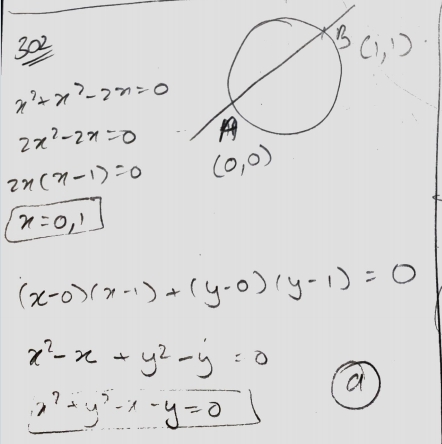 302
x²+x²-2x=0
2x²-2x=0
2x(x-1)=0
x=0,1
B (1,1)
A
(0,0)
(x-0)(x-1)+(y-0)(y-1)=0
x²-x+y²-y=0
x²+y²-x-y=0
a